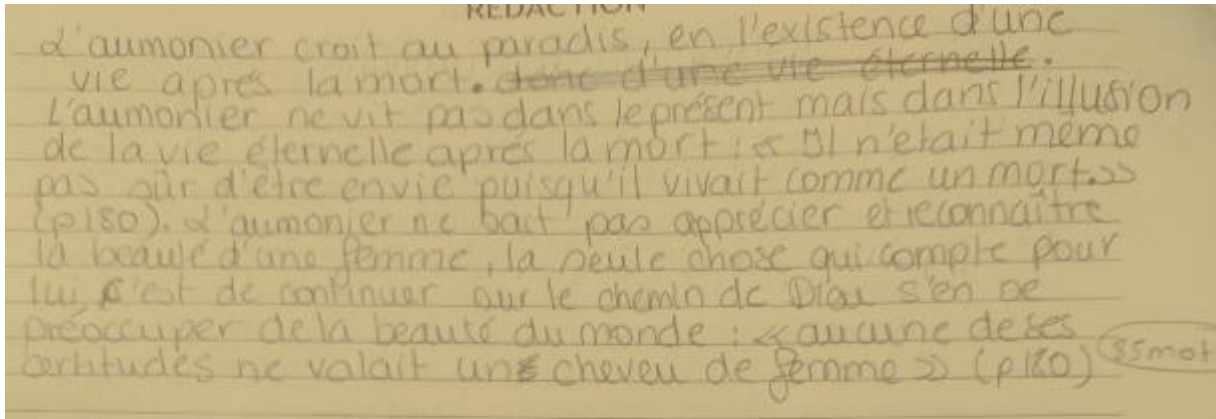 REDACTION
L'aumonier croit au paradis, en l'existence d'une
vie après la mort. donc d'une vie éternelle.
L'aumonier ne vit pas dans le présent mais dans l'illusion
de la vie éternelle après la mort : « Il n'était même
pas sûr d'être envie puisqu'il vivait comme un mort. »
(p180). L'aumonier ne sait pas apprécier et reconnaître
la beauté d'une femme, la seule chose qui compte pour
lui c'est de continuer sur le chemin de Dieu s'en se
préoccuper de la beauté du monde : « aucune de ses
certitudes ne valait un cheveu de femme » (p180)
85mot